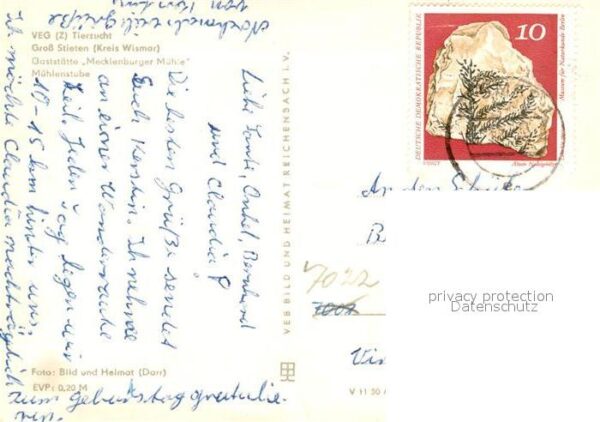 VEG (Z) Tierzucht
Groß Stieten (Kreis Wismar)
Gaststätte „Mecklenburger Mühle"
Mühlenstube
Liebe Tante, Onkel, Bernhard
und Claudia!
Die besten Grüße sendet
Euch Kerstin. Ich nehme
an einer Wanderwoche
teil. Jeden Tag liegen wir
10-15 km hinter uns.
Ich möchte Claudia nachträglich
zum Geburtstag gratulie-
ren.
Nochmals viele Grüße
von Kerstin
Foto: Bild und Heimat (Darr)
EVP: 0,20 M
VEB BILD UND HEIMAT REICHENBACH I. V.
V 11 50
DEUTSCHE DEMOKRATISCHE REPUBLIK
10
Museum für Naturkunde Berlin
VOIGT
An den
7022
7002
privacy protection
Datenschutz